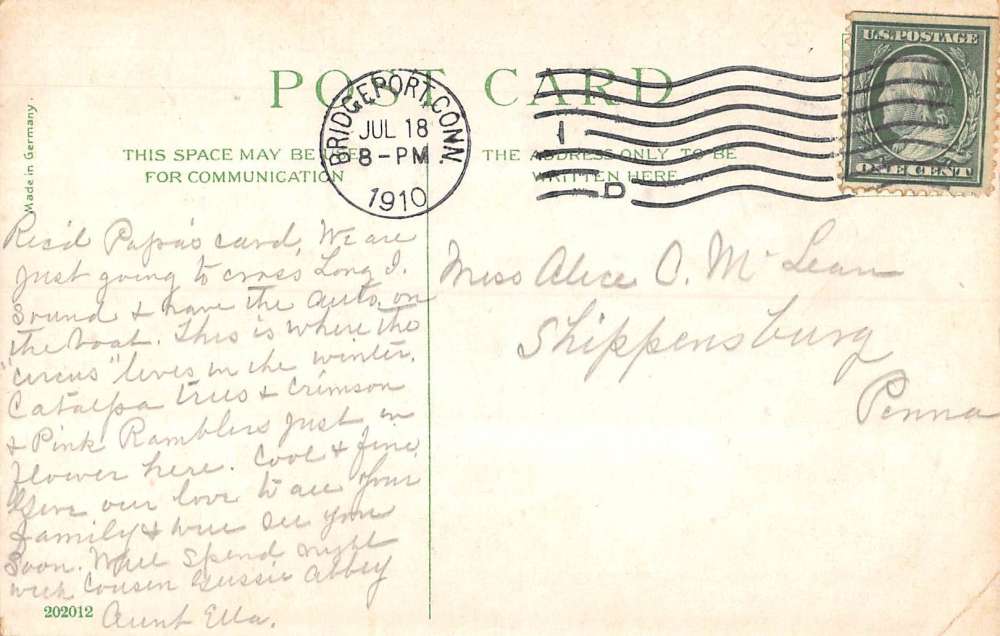 POST CARD
Made in Germany.
THIS SPACE MAY BE USED
FOR COMMUNICATION
THE ADDRESS ONLY TO BE
WRITTEN HERE
BRIDGEPORT, CONN.
JUL 18
8-PM
1910
1
D
U.S. POSTAGE
ONE CENT
Rec'd Papa's card. We are
just going to cross Long I.
Sound & have the auto on
the boat. This is where the
"circus" lives in the winter.
Catalpa trees & Crimson
& Pink Ramblers just in
flower here. Cool & fine.
Give our love to all your
family & will see you
soon. Will spend night
with Cousin Gussie Abbey
Aunt Ella.
202012
Miss Alice C. McLean
Shippensburg
Penna